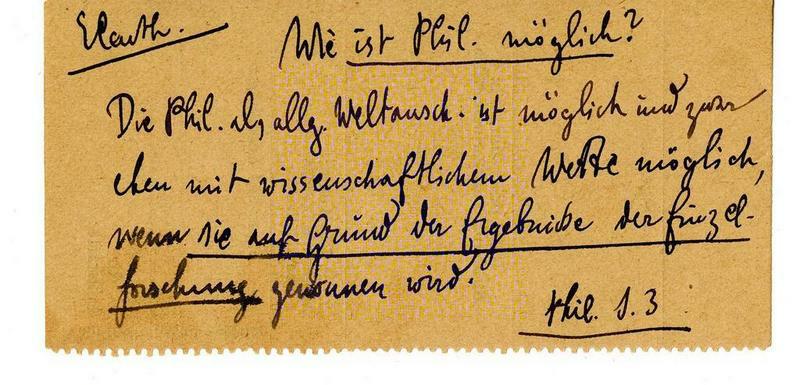 Wie ist Phil. möglich?
Die Phil. als allg. Weltansch. ist möglich und zwar
eben mit wissenschaftlichem Werte möglich,
wenn sie auf Grund der Ergebnisse der Einzel-
forschung gewonnen wird.
Phil. S. 3